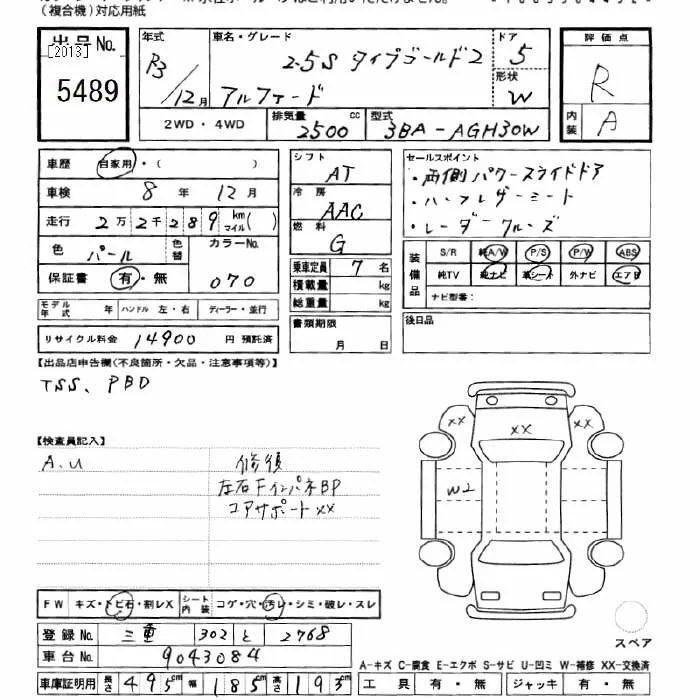 (複合機)対応用紙
出品No.
[2013]
5489
年式
R3/12月
車名・グレード
2.5S タイプゴールド2
アルファード
ドア
5
形状
W
評価点
R
内装
A
2WD・4WD
排気量
2500 cc
型式
3BA-AGH30W
車歴 自家用・( )
車検 8年 12月
走行 2万2千289 km マイル( )
色 パール 色替
カラーNo.
070
保証書 有・無
モデル年式 年 ハンドル 左・右 ディーラー・並行
リサイクル料金 14900 円 預託済
シフト
AT
冷房
AAC
燃料
G
乗車定員 7 名
積載量 kg
総重量 kg
書類期限
月 日
セールスポイント
・両側パワースライドドア
・ハーフレザーシート
・レーダークルーズ
装備品
S/R 純A/W P/S P/W ABS
純TV 純ナビ 革シート 外ナビ エアB
ナビ型番:
後日品
【出品店申告欄(不良箇所・欠品・注意事項等)】
TSS、PBD
【検査員記入】
A.U 修復
左右FインパネBP
コアサポートXX
XX
XX
XX
W2
FW キズ・トビ石・割レX シート内装 コゲ・穴・汚レ・シミ・破レ・スレ
登録No. 三重 302 と 2768
車台No. 9043084
車庫証明用 長さ 495cm 幅 185cm 高さ 193cm
スペア
A-キズ C-腐食 E-エクボ S-サビ U-凹ミ W-補修 XX-交換済
工具 有・無 ジャッキ 有・無